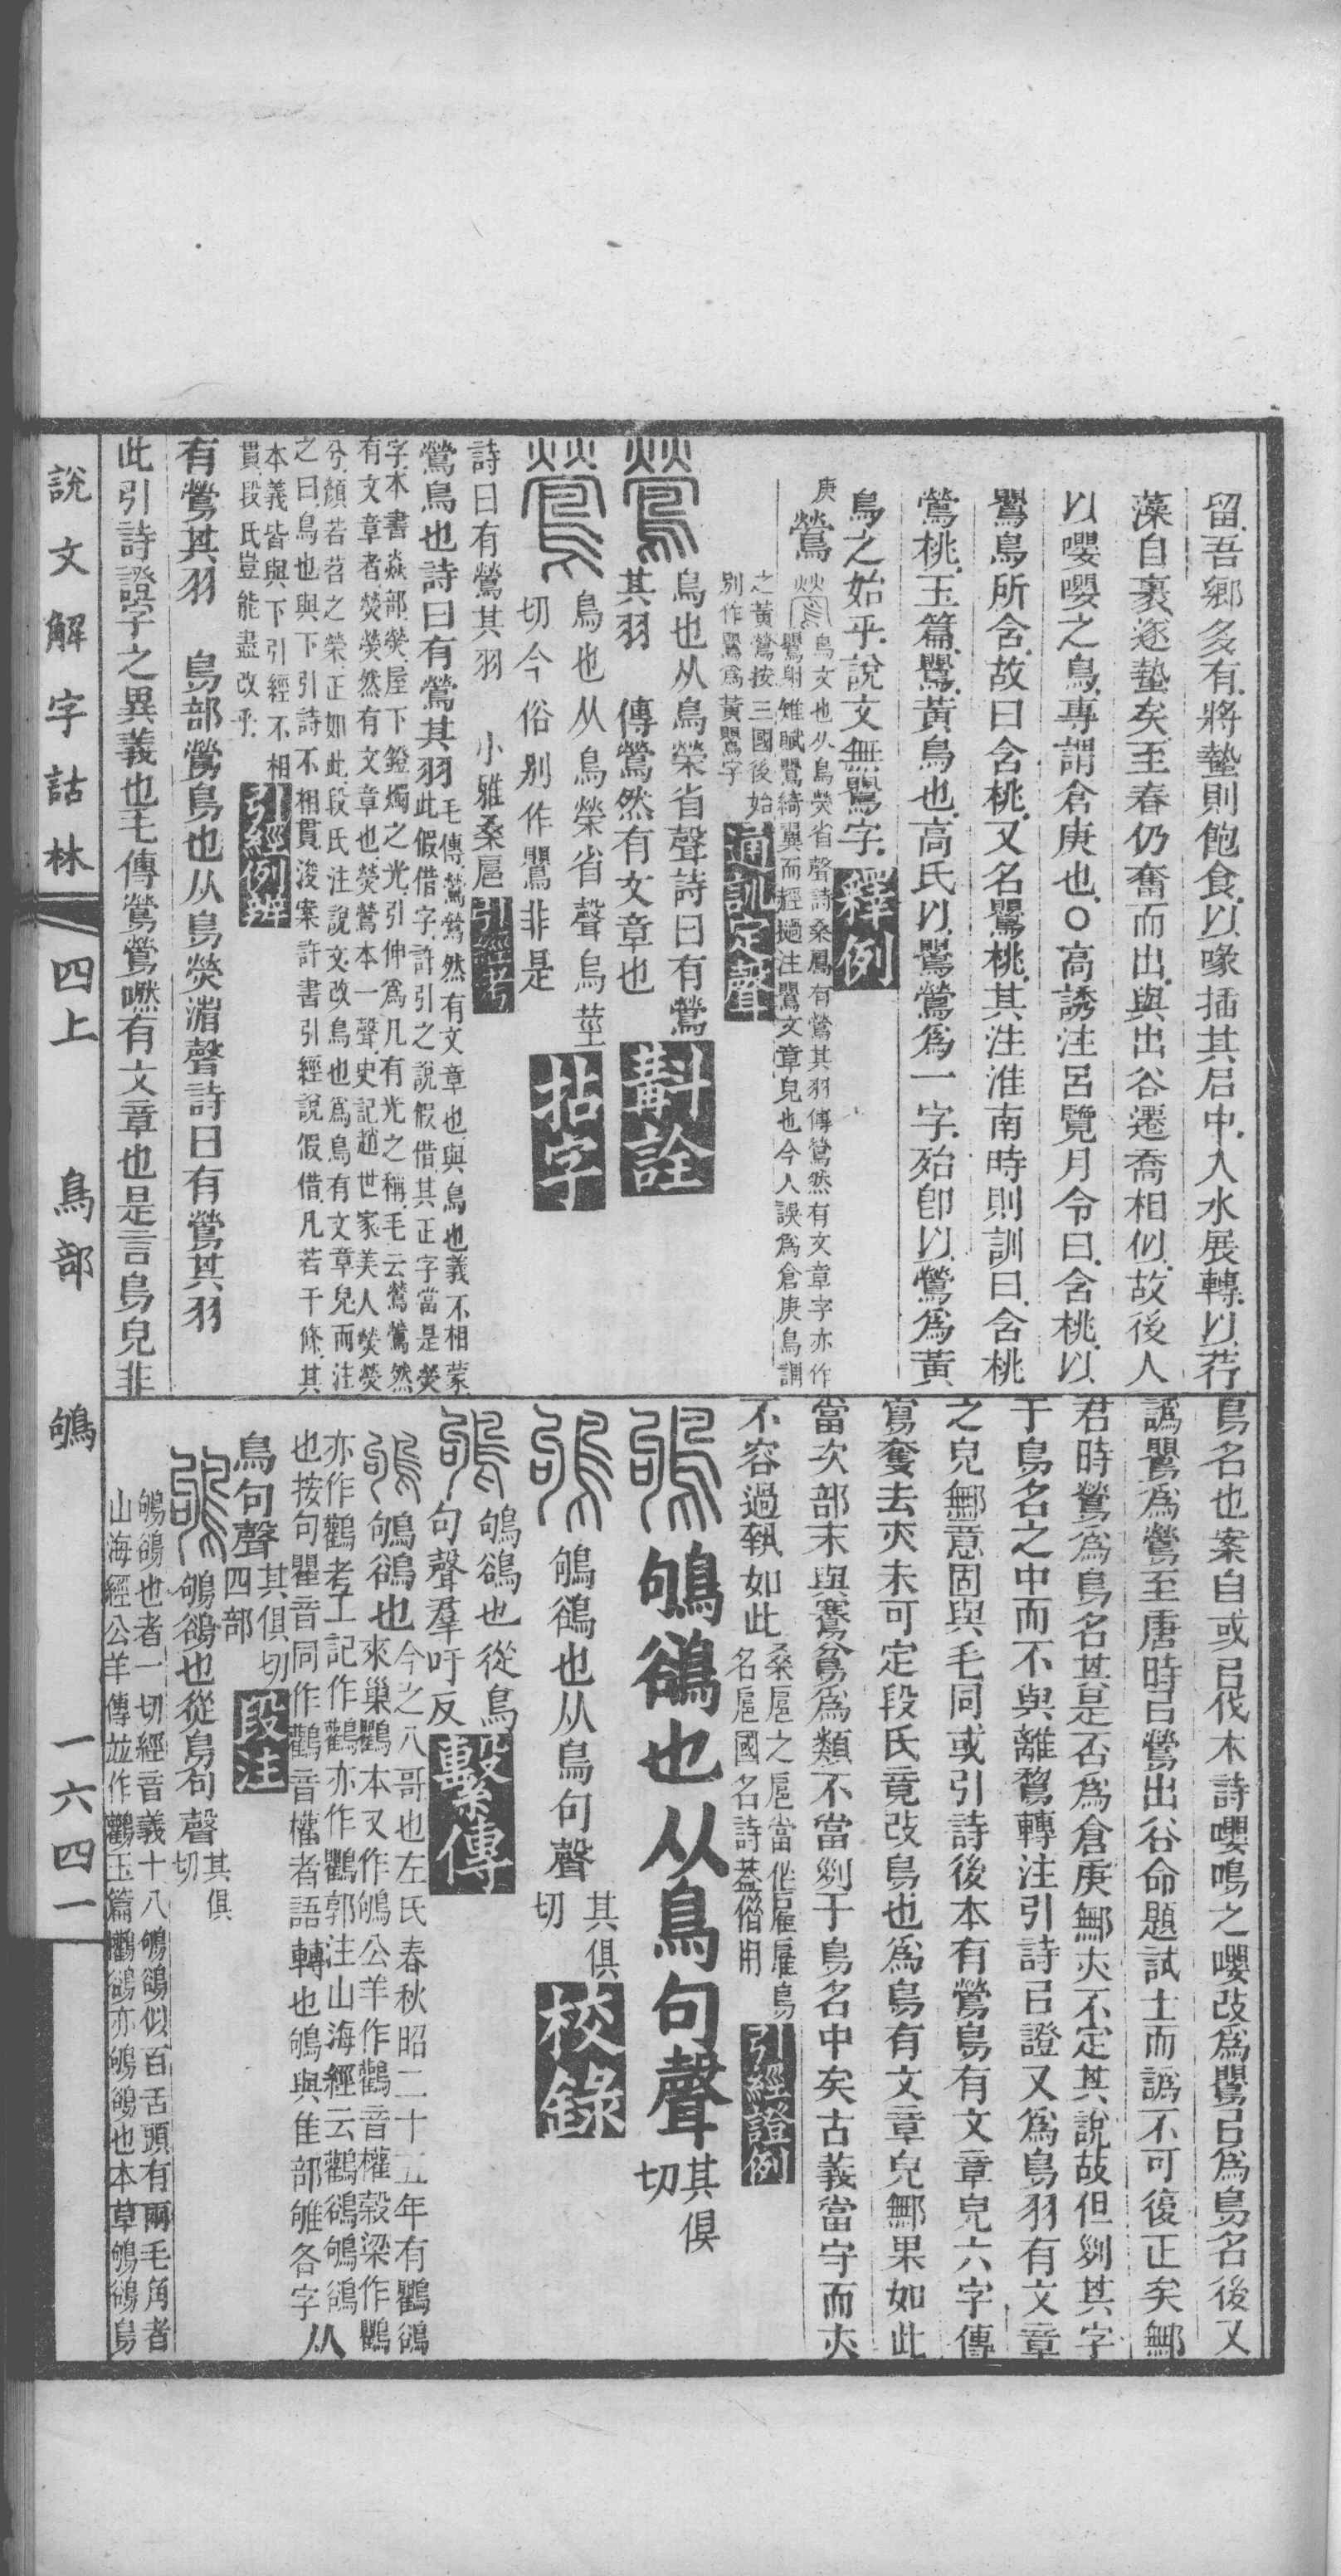 留.吾鄉多有.將蟄則飽食.以喙插其后中.入水展轉.以荇
藻自裹.逐蟄矣.至春仍奮而出.與出谷遷喬相似.故後人
以嚶嚶之鳥.專謂倉庚也.○高誘注呂覽月令曰.含桃.以
鸎鳥所含.故曰含桃.又名鸎桃.其注淮南時則訓曰.含桃
鶯桃.玉篇.鸎.黃鳥也.高氏以鸎鶯為一字.殆即以鶯為黃
鳥之始乎.說文無鸎字.釋例
庚 鶯
鳥文也从鳥熒省聲詩桑扈有鶯其羽傳鶯然有文章字亦作
鸎射雉賦鸎綺翼而經撾注鸎文章皃也今人誤為倉庚鳥謂
之黃鶯按三國後始
別作鸎為黃鸎字 通訓定聲
鳥也从鳥榮省聲詩曰有鶯
其羽 傳鶯然有文章也 斠詮
鳥也从鳥榮省聲烏莖
切今俗別作鸎非是 拈字
詩曰有鶯其羽 小雅桑扈 引經考
毛傳.鶯鶯.然有文章也.與鳥也義不相蒙
鶯鳥也詩曰有鶯其羽 此假借字.許引之說假借.其正字當是熒
字.本書焱部.熒.屋下鐙燭之光.引伸為凡有光之稱.毛云鶯鶯然
有文章者.熒熒然有文章也.熒鶯本一聲.史記趙世家.美人熒熒
兮.顏若苕之榮.正如此.段氏注說文.改鳥也為鳥有文章皃.而注
之曰.鳥也與下引詩不相貫.浚案許書引經說假借.凡若干條.其
本義皆與下引經不相
貫.段氏豈能盡改乎. 引經例辨
有鶯其羽 鳥部鶯鳥也从鳥熒渻聲詩曰有鶯其羽
此引詩證字之異義也毛傳鶯鶯嘫有文章也是言鳥皃非
鳥名也案自或㠯伐木詩嚶鳴之嚶改為鸎㠯為鳥名後又
譌鸎為鶯至唐時㠯鶯出谷命題試士而譌不可復正矣鄦
君時鶯為鳥名其是否為倉庚鄦亦不定其說故但㓟其字
于鳥名之中而不與離鶩轉注引詩㠯證又為鳥羽有文章
之皃鄦意固與毛同或引詩後本有鶯鳥有文章皃六字傳
寫奪去亦未可定段氏竟改鳥也為鳥有文章皃鄦果如此
當次部末與鶱鳻為類不當㓟于鳥名中矣古義當守而亦
不容過執如此 桑扈之扈當作雇雇鳥
名扈國名詩葢偺用 引經證例
鴝鵒也从鳥句聲 其俱
切
鴝鵒也从鳥句聲 其俱
切 校錄
鴝鵒也從鳥
句聲羣吁反 繫傳
鴝鵒也 今之八哥也左氏春秋昭二十五年有鸜鵒
來巢鸜本又作鴝公羊作鸛音權榖梁作鸜
亦作鸛考工記作鸜亦作鸜郭注山海經云鸜鵒鴝鵒
也按句瞿音同作鸛音權者語轉也鴝與隹部雊各字 从
鳥句聲 其俱切
四部 段注
鴝鵒也從鳥句聲 其俱
切
鴝鵒也者一切經音義十八鴝鵒似百舌頭有兩毛角者
山海經公羊傳並作鸛玉篇鸜鵒亦鴝鵒也本草鴝鵒鳥
說文解字詁林 四上 鳥部 鴝 一六四一